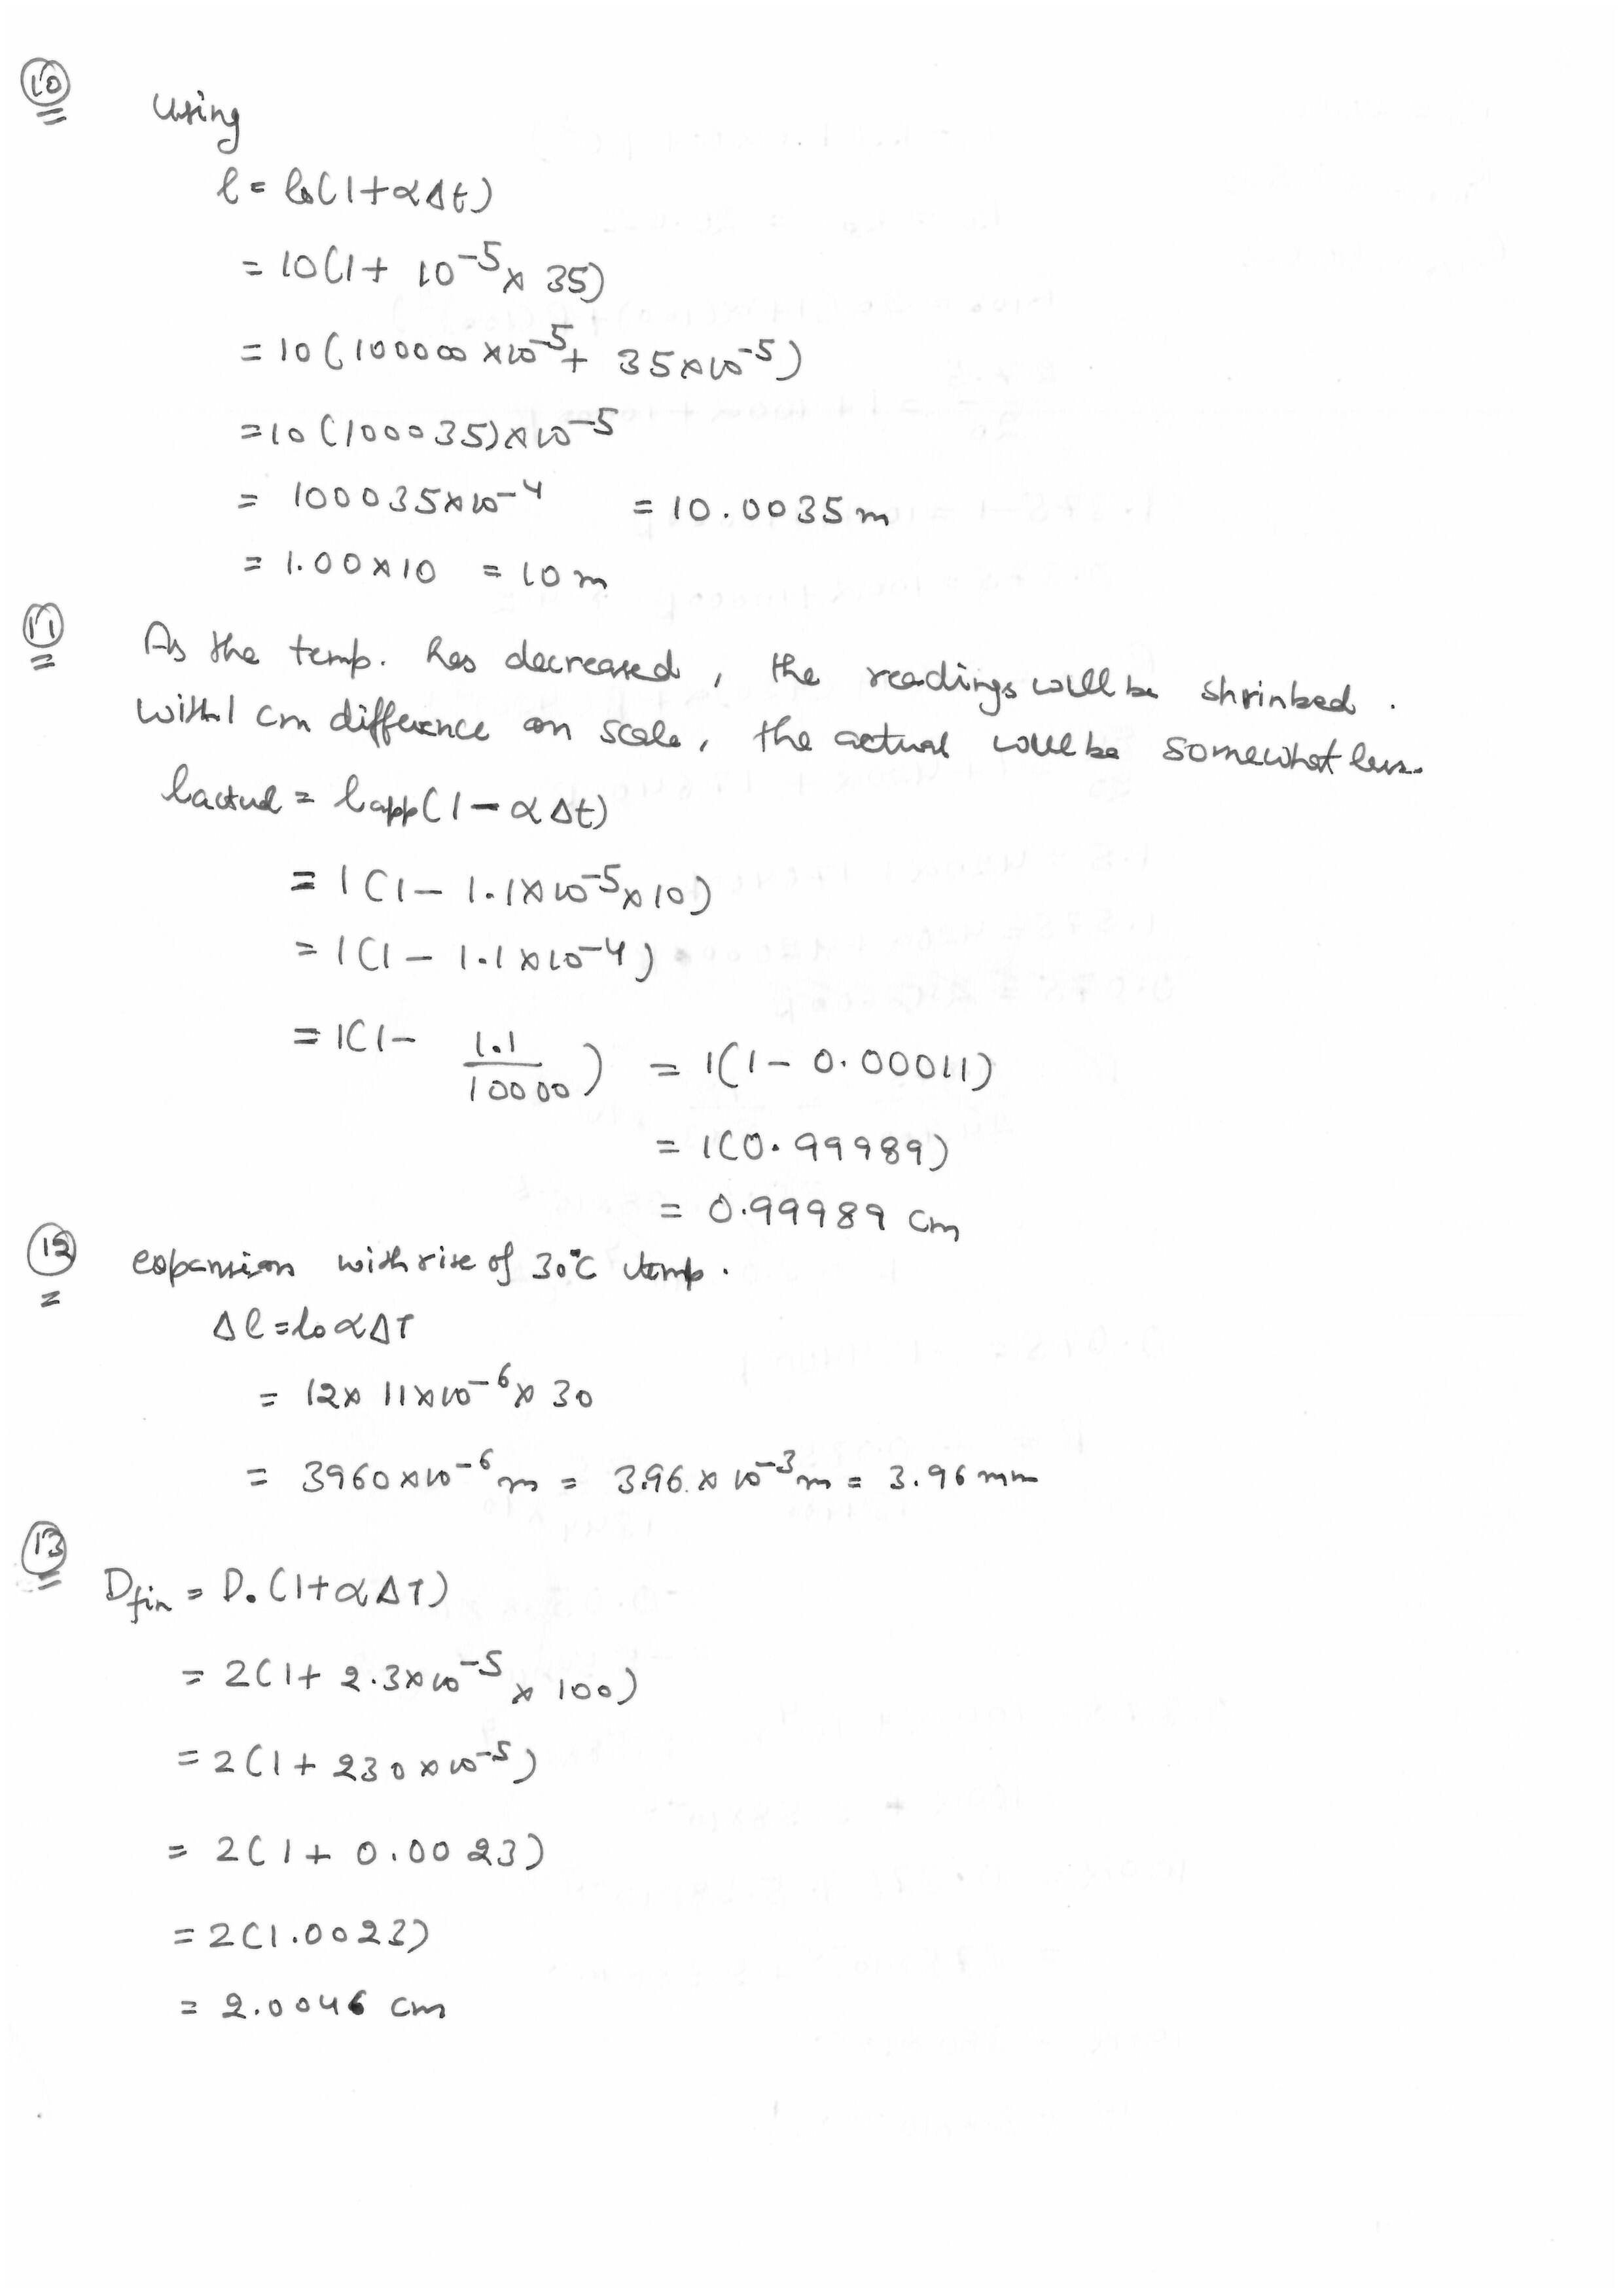 10
Using
l = l₀(1+αΔt)
= 10(1+ 10⁻⁵ × 35)
= 10(100000 ×10⁻⁵ + 35×10⁻⁵)
=10(100035)×10⁻⁵
= 100035×10⁻⁴ = 10.0035 m
= 1.00×10 = 10 m
11
As the temp. has decreased, the readings will be shrinked.
With 1 cm difference on scale, the actual will be somewhat less.
lactual = lapp(1-αΔt)
= 1(1- 1.1×10⁻⁵×10)
= 1(1- 1.1×10⁻⁴)
= 1(1- 1.1/10000) = 1(1-0.00011)
= 1(0.99989)
= 0.99989 cm
12
expansion with rise of 30°C temp.
Δl = l₀αΔT
= 12× 11×10⁻⁶× 30
= 3960×10⁻⁶ m = 3.96.× 10⁻³ m = 3.96 mm
13
Dfin = D₀(1+αΔT)
= 2(1+ 2.3×10⁻⁵ × 100)
= 2(1+ 230×10⁻⁵)
= 2(1+ 0.0023)
= 2(1.0023)
= 2.0046 cm